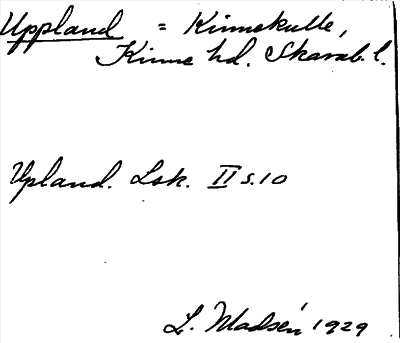 Uppland = Kinnekulle,
Kinne hd. Skarab. l.
Upland. Lsk. II s. 10
L. Madsén 1929